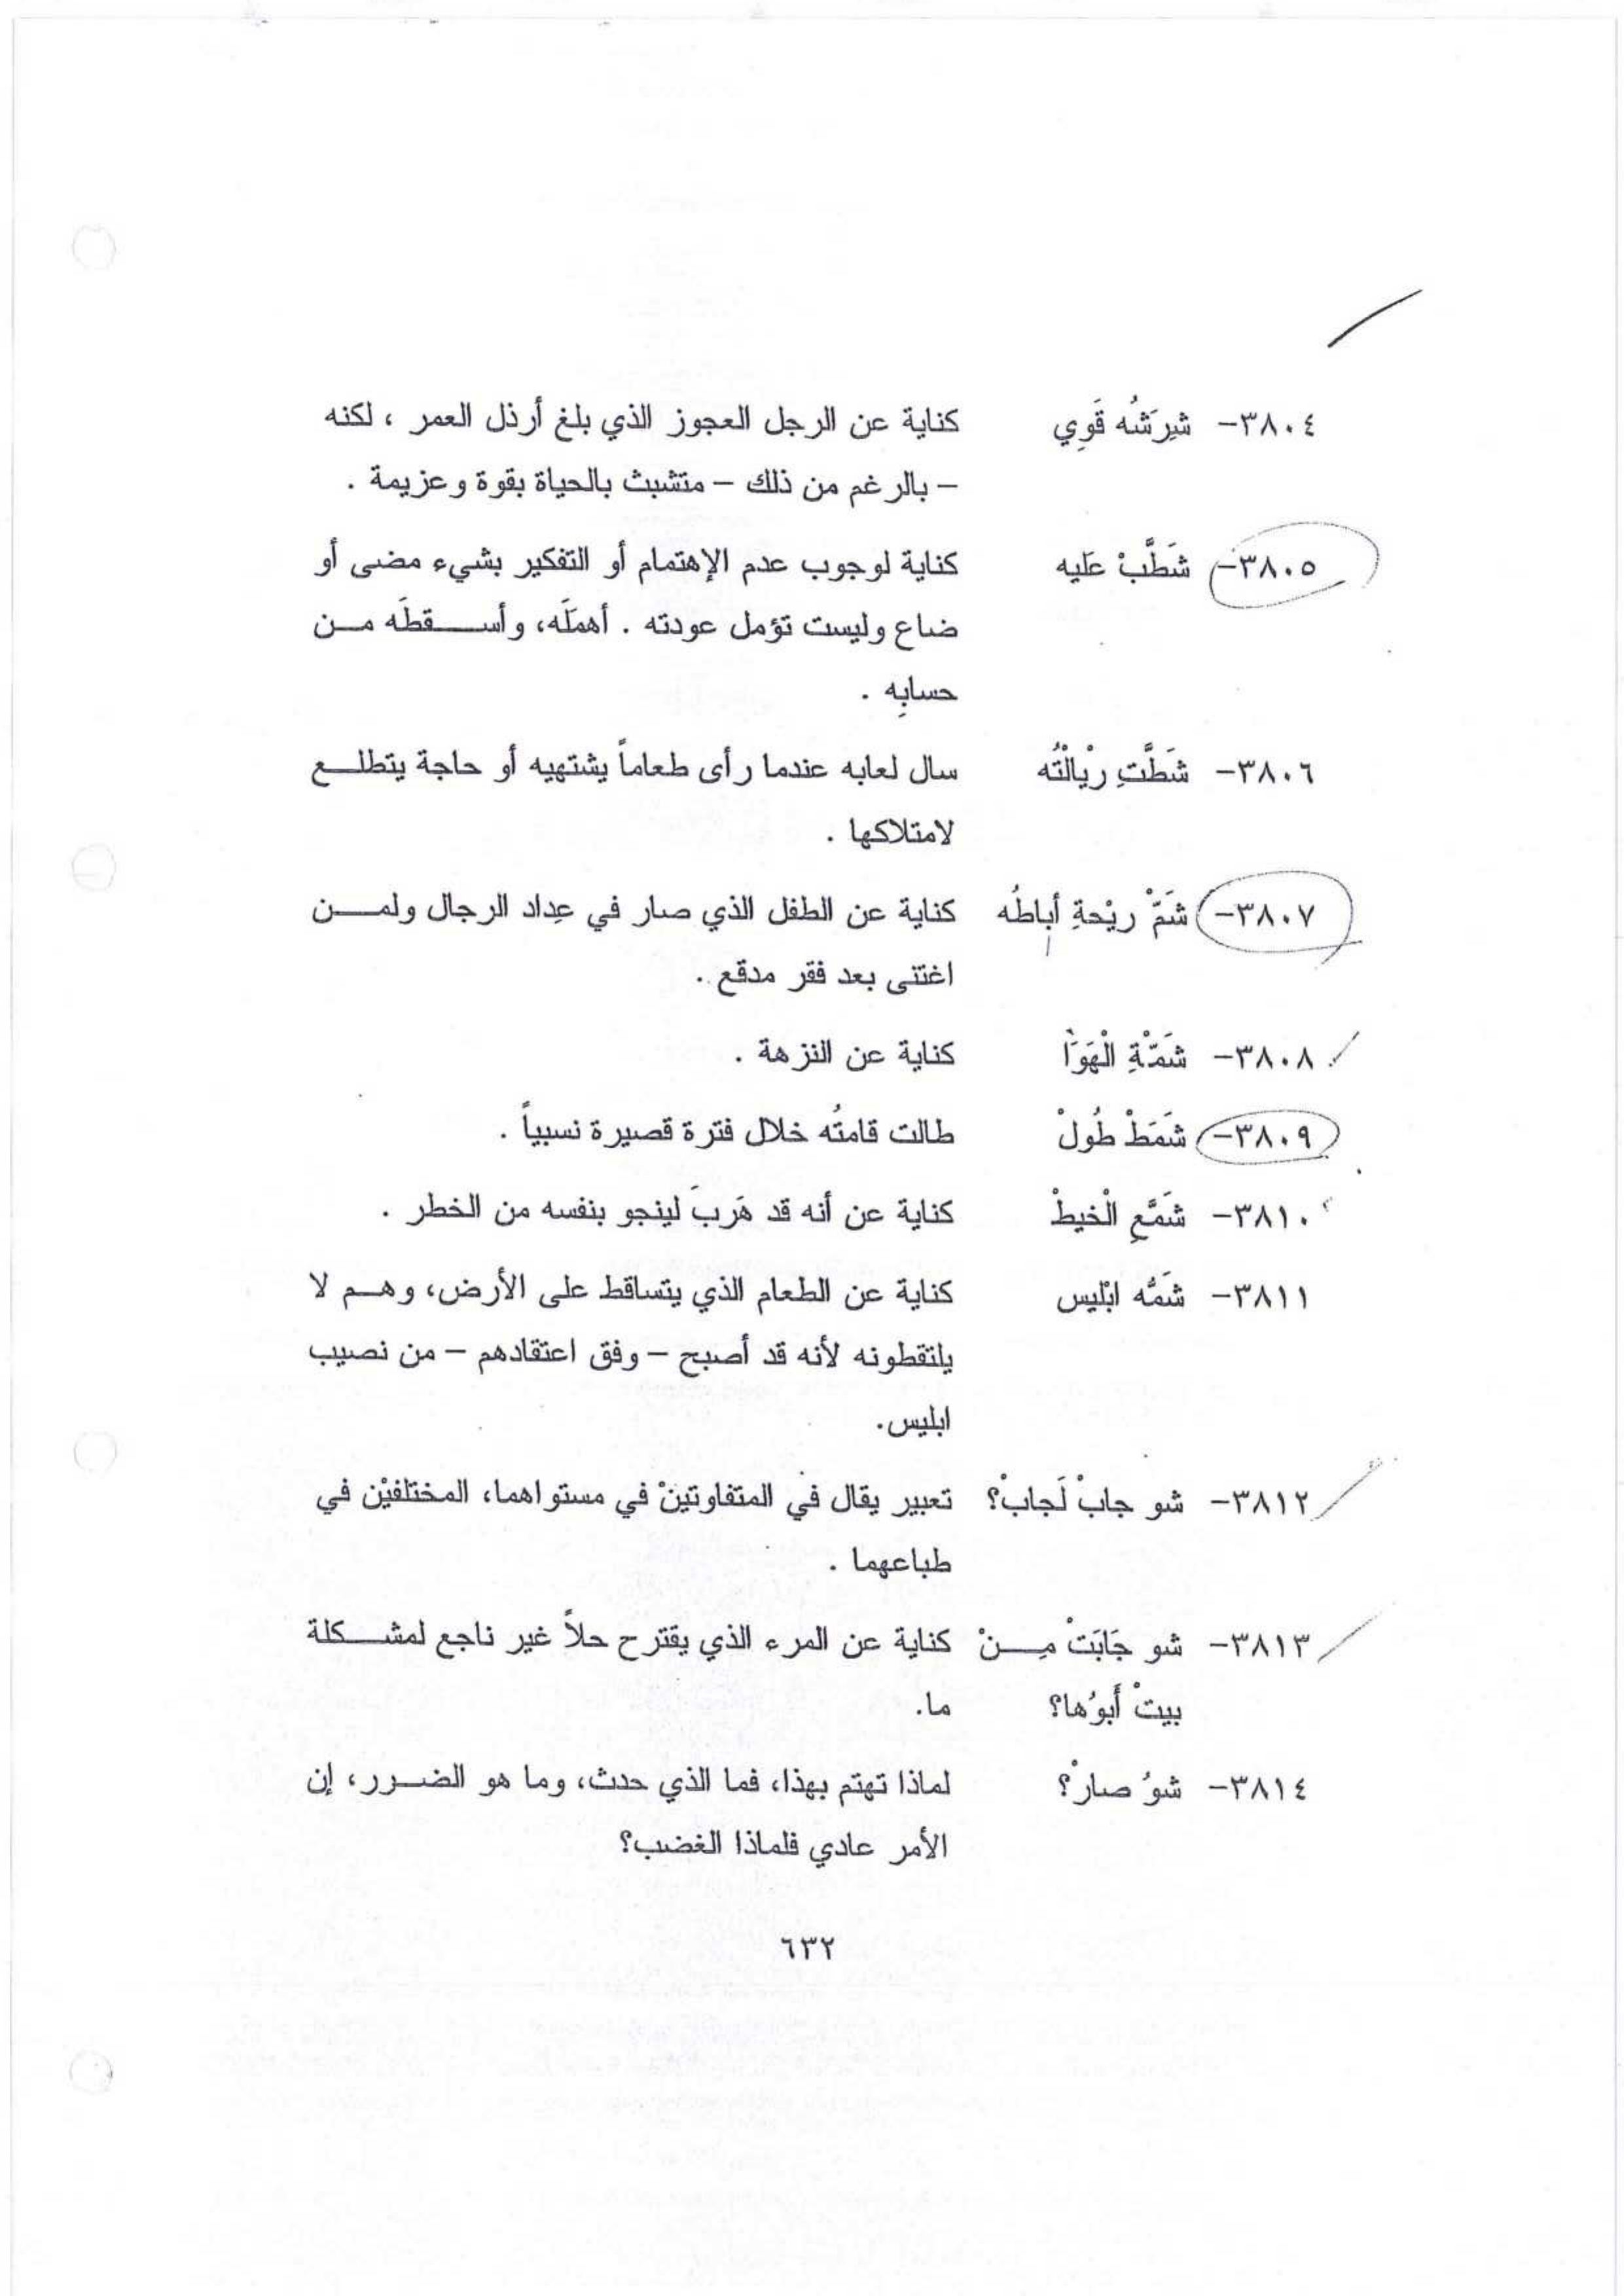 ٣٨٠٤- شِرَشُه قَوِي كناية عن الرجل العجوز الذي بلغ أرذل العمر ، لكنه
- بالرغم من ذلك - متشبث بالحياة بقوة وعزيمة .
٣٨٠٥- شَطَّبْ عَليه كناية لوجوب عدم الإهتمام أو التفكير بشيء مضى أو
ضاع وليست تؤمل عودته . أهملَه، وأسقطَه من
حسابِه .
٣٨٠٦- شَطَّتِ رْيْالْتُه سال لعابه عندما رأى طعاماً يشتهيه أو حاجة يتطلع
لامتلاكها .
٣٨٠٧- شَمّْ ريْحةِ أباطُه كناية عن الطفل الذي صار في عِداد الرجال ولمن
اغتنى بعد فقر مدقع .
٣٨٠٨- شَمّْةِ الْهَوَا كناية عن النزهة .
٣٨٠٩- شَمَطْ طُولْ طالت قامتُه خلال فترة قصيرة نسبياً .
٣٨١٠- شَمَّعِ الْخيطْ كناية عن أنه قد هَربَ لينجو بنفسه من الخطر .
٣٨١١- شَمُّه ابْليس كناية عن الطعام الذي يتساقط على الأرض، وهم لا
يلتقطونه لأنه قد أصبح - وفق اعتقادهم - من نصيب
ابليس.
٣٨١٢- شو جابْ لَجابْ؟ تعبير يقال في المتفاوتينْ في مستواهما، المختلفيْن في
طباعهما .
٣٨١٣- شو جَابَتْ مِنْ كناية عن المرء الذي يقترح حلاً غير ناجع لمشكلة
بيتْ أَبوُها؟ ما.
٣٨١٤- شوُ صارْ؟ لماذا تهتم بهذا، فما الذي حدث، وما هو الضرر، إن
الأمر عادي فلماذا الغضب؟
٦٣٢